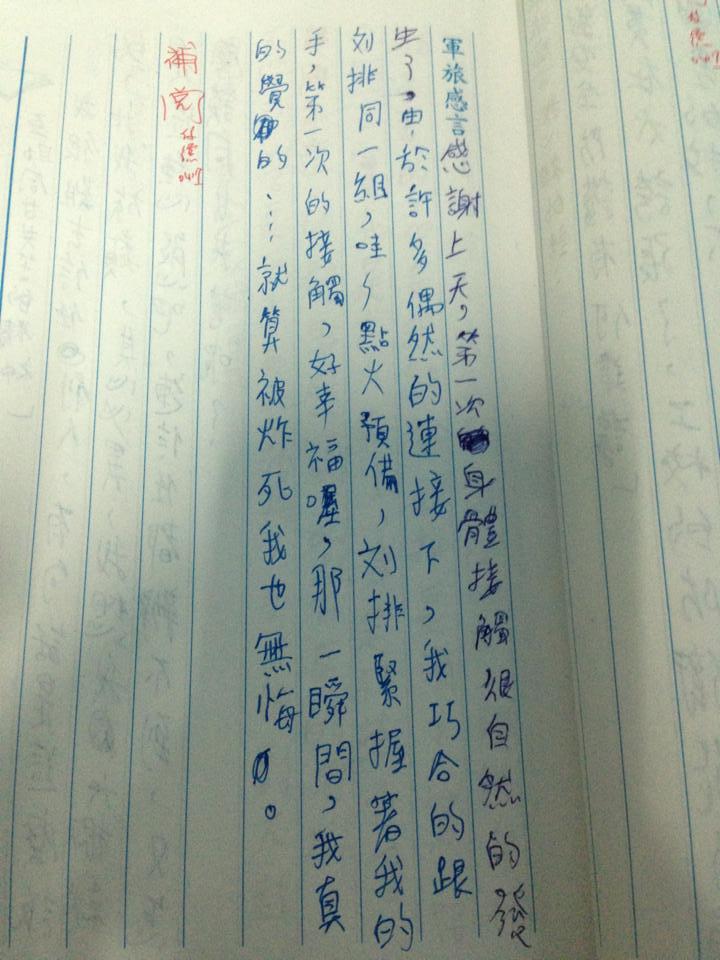 軍旅感言感謝上天，第一次身體接觸很自然的發
生了，由於許多偶然的連接下，我巧合的跟
刘排同一組，哇～點火預備，刘排緊握著我的
手，第一次的接觸，好幸福喔，那一瞬間，我真
的覺的……就算被炸死我也無悔。
補閱
0417